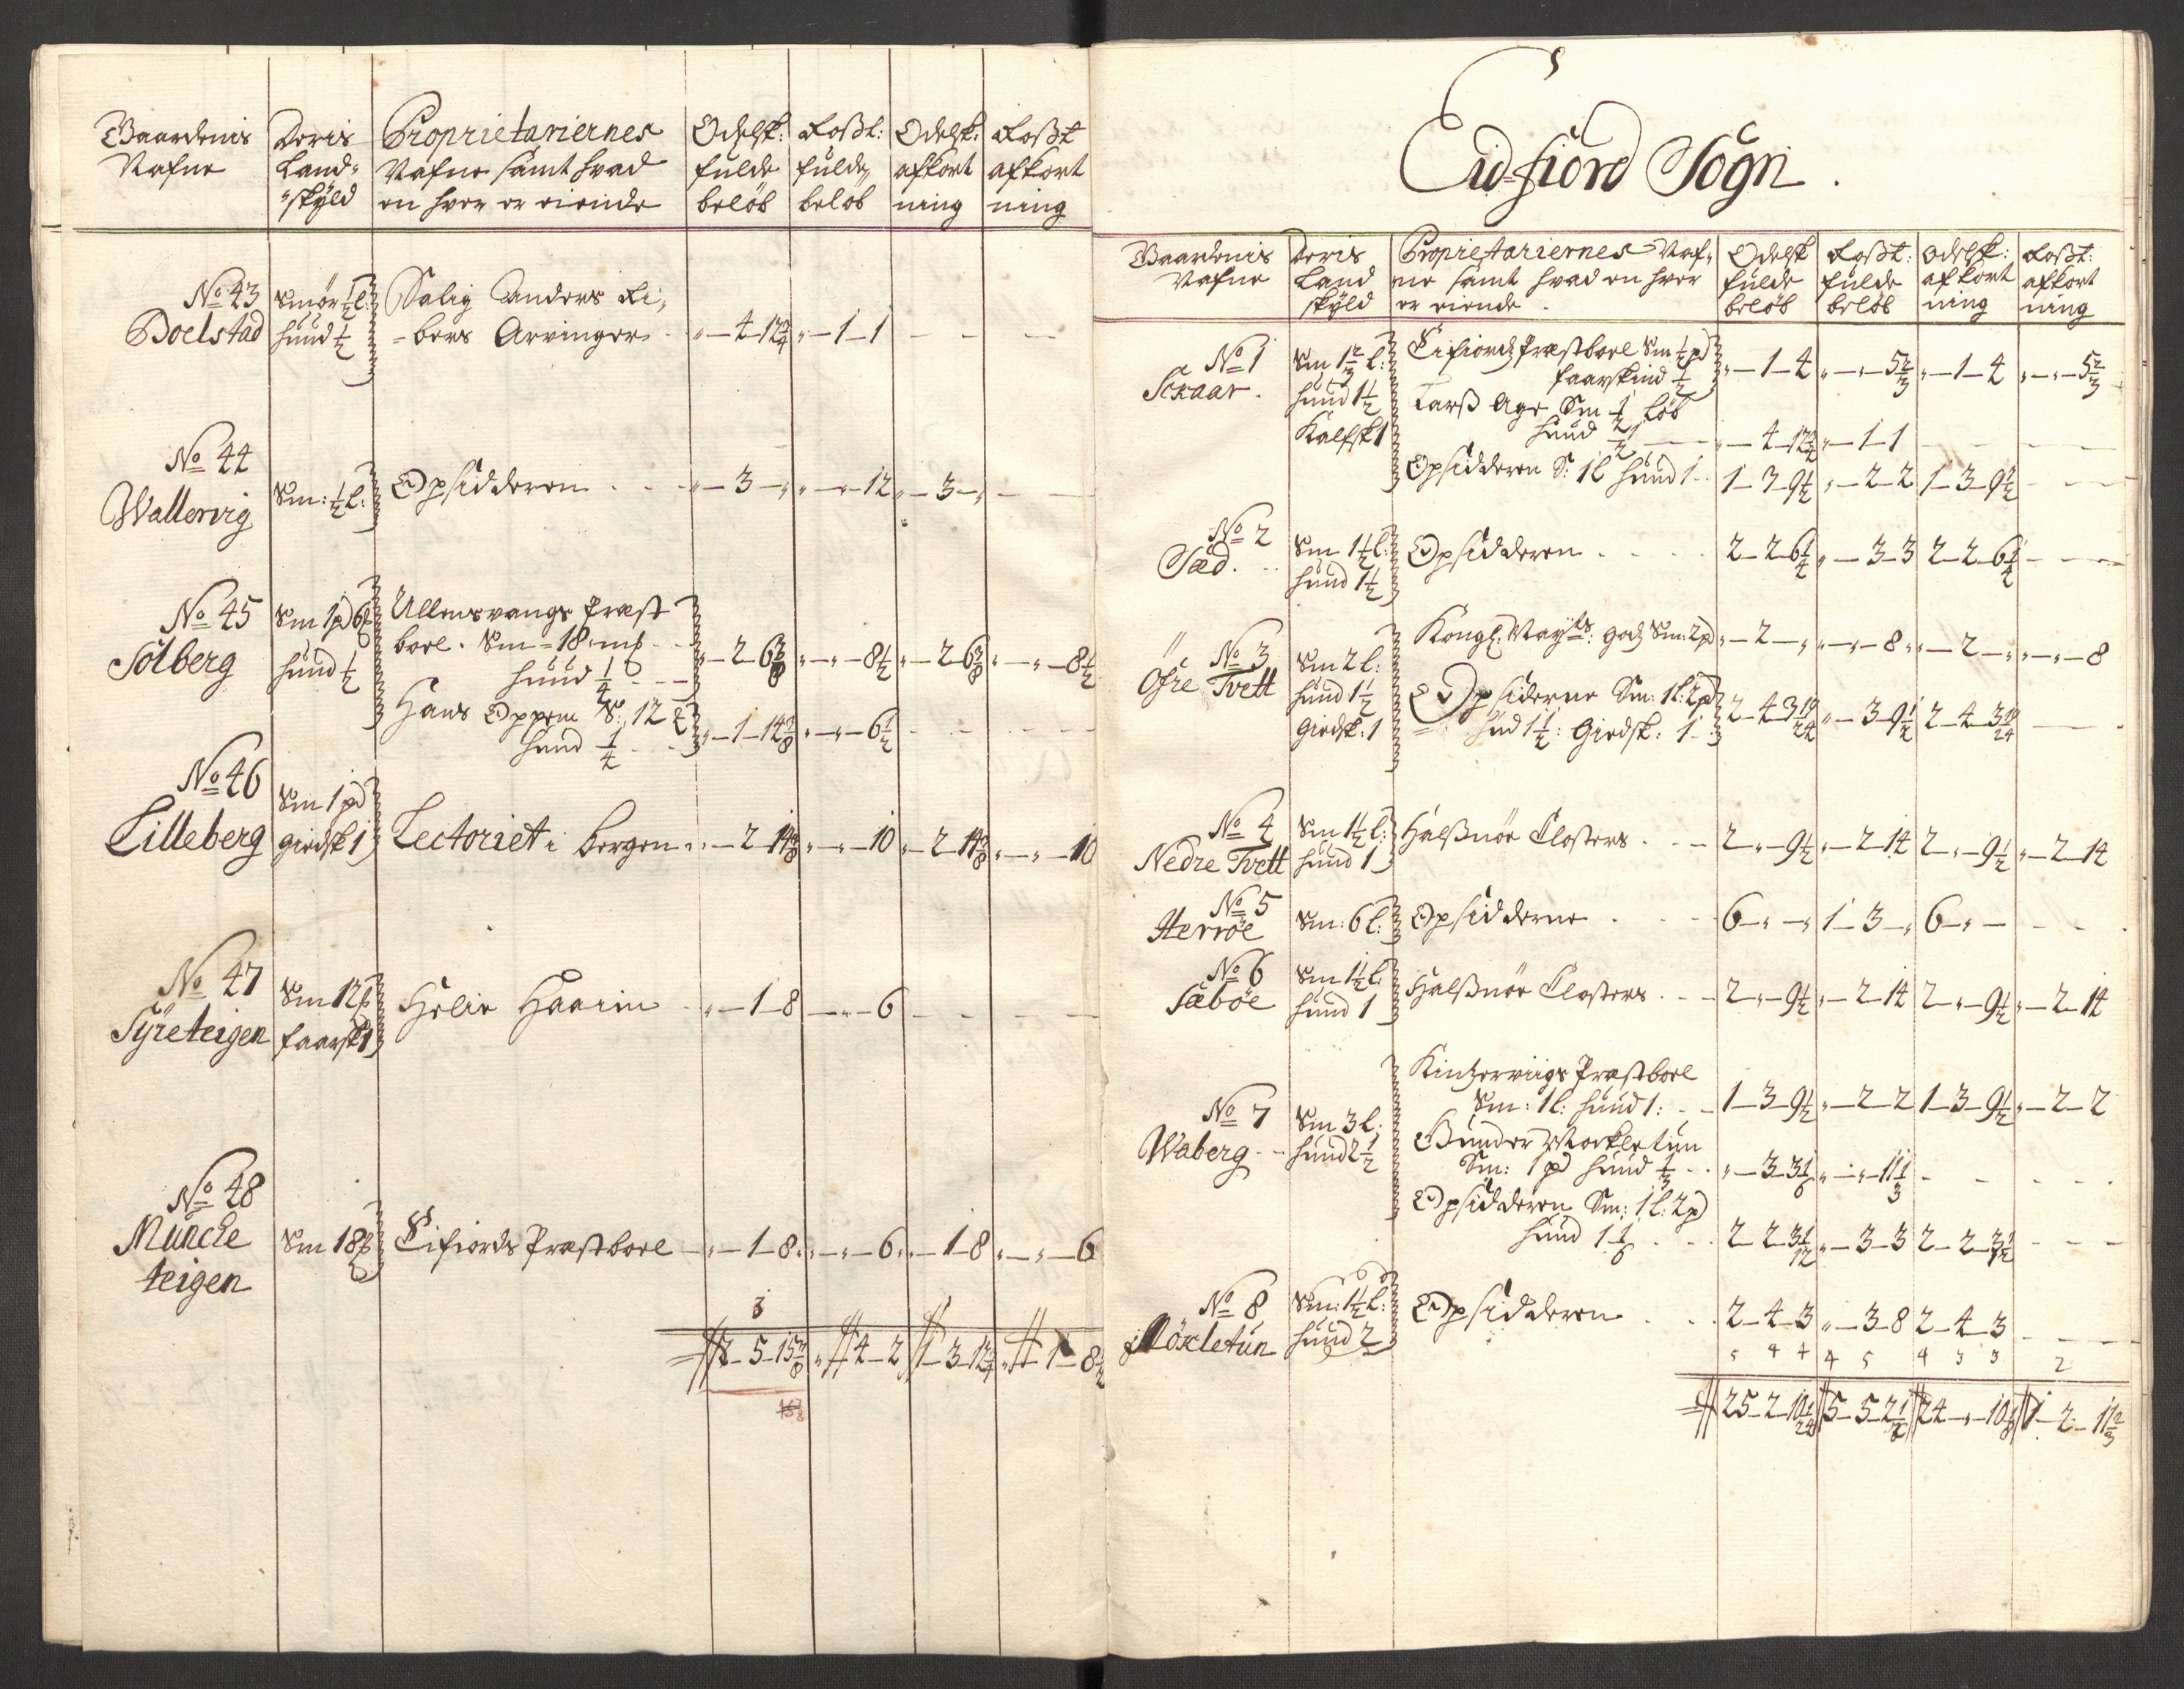 Gaardenis Nafne | Deris Land-skÿld | Proprietariernes Nafne samt hvad en hver er eiende | Odelsk: fulde beløb | Roßt: fulde beløb | Odelsk: afkort ning | Roßt afkort ning
No 43 Boelstad | Smör ½ l: hund ½ | Salig Anders Ri,
bers Arvinger | „–4–12¾ | „–1–1 | – | –
No 44 Wallervig | Sm: ½ l: | Opsidderen | „–3–„ | „–„–12 | „–3–„ | –
No 45 Solberg | Sm 1 pd 6 hund ½ | Ullensvangs Præst
boel. Sm=18 mk
huud ¼ | „–2–6⅜ | „–„–8½ | „–2–6⅜ | „–„–8½
Hans Oppem S: 12
huud ¼ | „–1–14⅜ | „–„–6½ | – | –
No 46 Lilleberg | Sm 1 pd giedsk 1 | Lectoriet i bergen | „–2–14⅜ | „–„–10 | „–2–14⅜ | „–„–10
No 47 Sÿreteigen | Sm 12 faarsk 1 | Helie Haaim | „–1–8 | –„–6 | – | –
No 48 Muncke teigen | Sm 18 | Eifiords Præstboel | „–1–8 | „–„–6 | „–1–8 | „–„–6
3
2–5–15⅞ | „ 4–2 | 1–3–12¾ | „ 1–8½
Eid-fiord Sogn.
Gaardenis Nafne | Deris Land skÿld | Proprietariernes Naf-
ne samt hvad en hver
er eiende. | Odelsk fulde beløb | Roßt: fulde beløb | Odelsk: afkort ning | Roßt: afkort ning
No 1 Skaar. | Sm 1⅔ l: huud 1½ Kalfsk 1 | Eifiords Præstboel Sm ½ pd
faarskind ½ | „–1–4 | „–„–5⅔ | „–1–4 | „–„–5⅔
Larß Age Sm ½ løb
huud ½ | „–4–12¾ | „–1–1 | – | –
Opsidderen S: 1 l huud 1 | 1–3–9½ | „–2–2 | 1–3–9½ | –
No 2 Sæd. | Sm 1½ l: huud 1½ | Opsidderen | 2–2–6¼ | „–3–3 | 2–2–6¼ | –
No 3 Öfre Tvett | Sm 2 l: huud 1½ Giedsk: 1 | Kongl: Mayts: godz Sm: 2 pd | „–2–„ | „–„–8 | „–2–„ | „–„–8
Opsiderne Sm: 1 l: 2 pd
hud 1½: Giedsk: 1 | 2–4–3 19/24 | „–3–9½ | 2–4–3 19/24 | –
No 4 Nedre Tvett | Sm 1½ l: huud 1 | Halßnöe Closters | 2–„–9½ | „–2–14 | 2–„–9½ | „–2–14
No 5 Herröe | Sm: 6 l: | Opsidderne | 6–„–„ | 1–3–„ | 6–„– | –
No 6 Sæböe | Sm 1½ l: huud 1 | Halßnöe Closters | 2–„–9½ | „–2–14 | 2–„–9½ | „–2–14
No 7 Waberg | Sm 3 l: huud 2½ | Kintzerviigs Præstboel
Sm: 1 l: huud 1: | 1–3–9½ | „–2–2 | 1–3–9½ | „–2–2
Gunder Möckletun
Sm: 1 pd huud ⅓ | „–3–3⅙ | „–„–11⅓ | – | –
Opsidderen Sm: 1 l: 2 pd
huud 1⅙ | 2–2–3 1/12 | „–3–3 | 2–2–3 1/12 | –
No 8 Möcletun | Sm: 1½ l: huud 2 | Opsidderen | 2–4–3 | „–3–8 | 2–4–3 | –
5 4 4 | 4 5 | 4 3 3 | 2
25–2–10 1/24 | 5–5–2½ | 24–„–10 | 1–2–11⅔